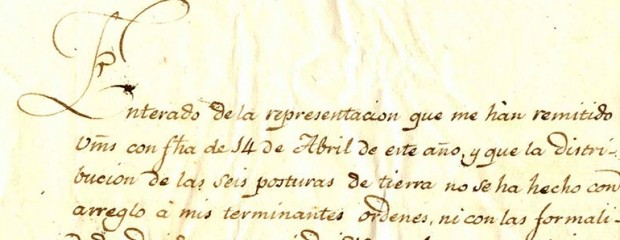 Enterado de la representacion que me hàn remitido
Vm̃s con fħa de 14 de Abril de este año, y que la distri-
bucion de las seis posturas de tierra no se ha hecho con
arreglo à mis terminantes ordenes, ni con las formali-